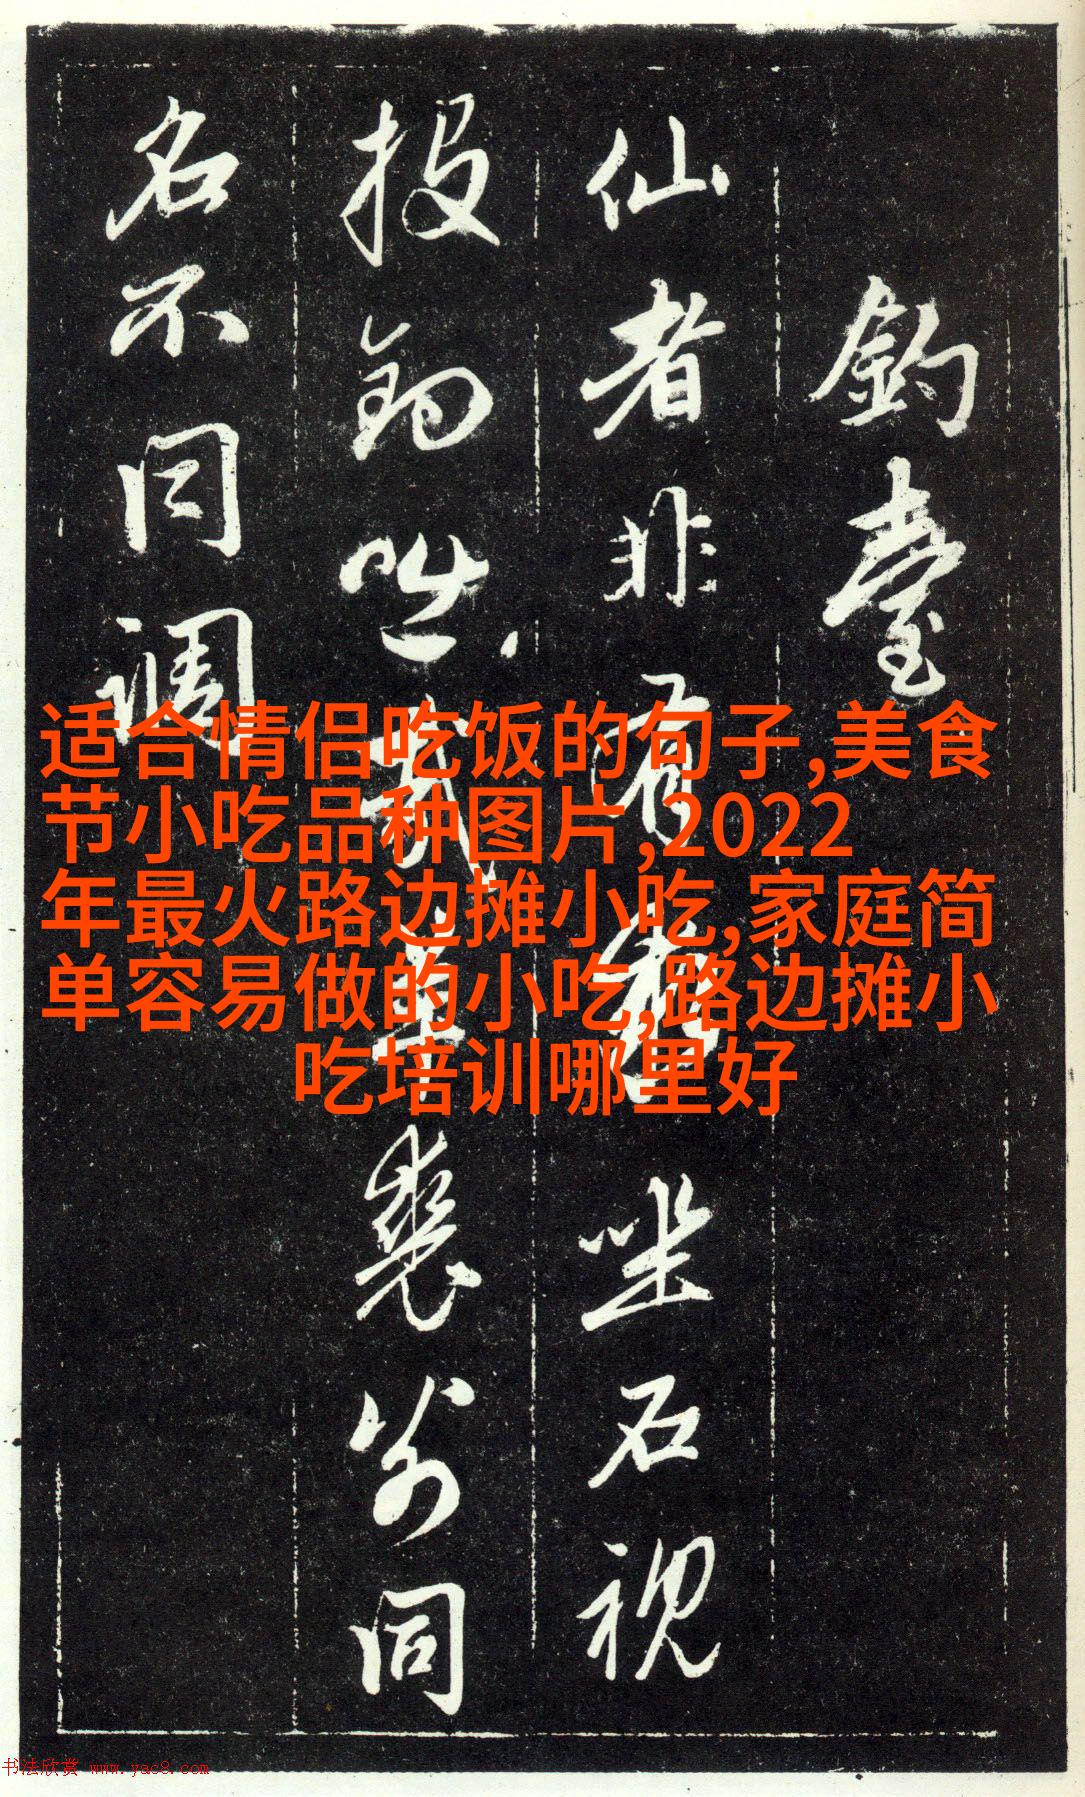 釣臺
仙者非有坐石視
投釣咄哉羊裘同
名不同調
适合情侣吃饭的句子,美食
节小吃品种图片,2022
年最火路边摊小吃,家庭简
单容易做的小吃,路边摊小
吃培训哪里好
书法欣赏 www.yac8.com